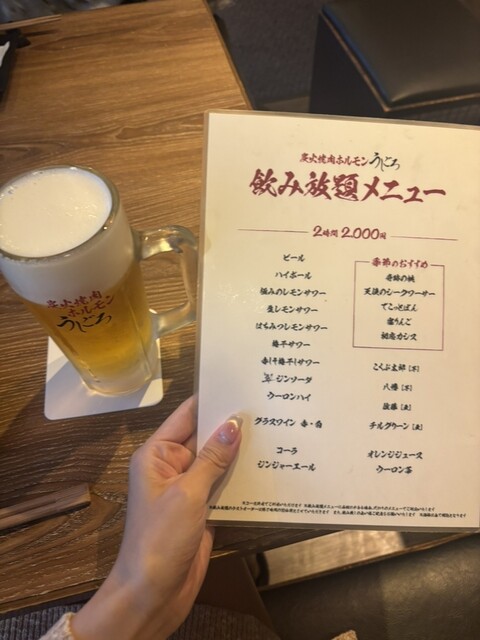 炭火焼肉
ホルモン
うしごろ
炭火焼肉ホルモン
飲み放題メニュー
2時間 2,000円
ビール
ハイボール
極みのレモンサワー
生レモンサワー
はちみつレモンサワー
梅干サワー
赤しそ梅干しサワー
翠ジンソーダ
ウーロンハイ
グラスワイン 赤・白
コーラ
ジンジャーエール
季節のおすすめ
奇跡の桃
天使のシークワーサー
てこっとぽん
蜜りんご
桃恋カシス
こくぶ玄郷 [芋]
八幡 [芋]
佐藤 [麦]
チルグリーン [麦]
オレンジジュース
ウーロン茶